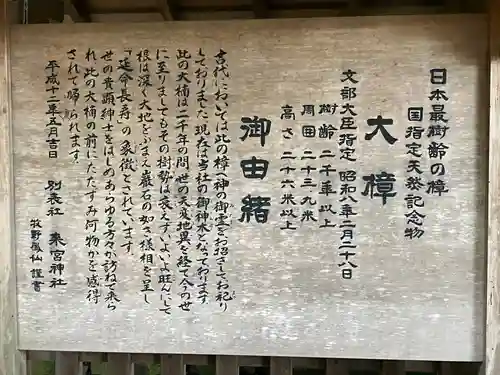 日本最樹齢の樟
国指定天然記念物
大樟
文部大臣指定 昭和八年二月二十八日
樹齢 二千年以上
周囲 二十三、九米
高さ 二十六米以上
御由緒
古代においては此の樟へ神の御霊をお招きしてお祀り
しておりました。現在は当社の御神木となっております。
此の大楠は二千年の間世の天変地異を経て今の世
に至りましてもその樹勢は衰えずいよいよ旺んにして
根は深く大地をふまえ巌石の如き様相を呈し
「延命長寿」の象徴とされています。
世の貴顕紳士をはじめあらゆる方々が訪ねて来ら
れ、此の大楠の前にたたずみ何物かを感得
されて帰られます。
平成十二年五月吉日
別表社 來宮神社
牧野
仙 謹書